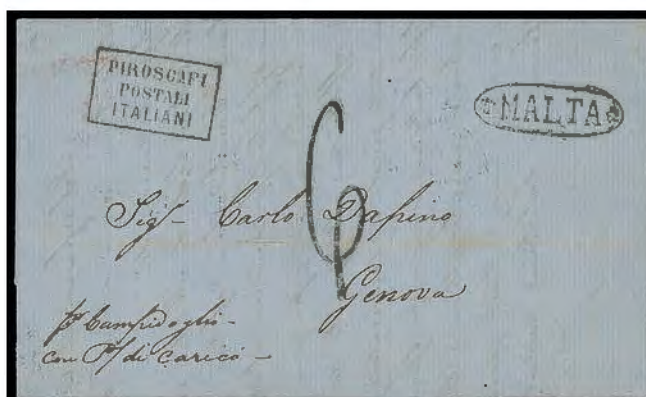 PIROSCAFI
POSTALI
ITALIANI
MALTA
6
Sigr. Carlo Dapino
Genova
pr Campidoglio
con P/ di carico